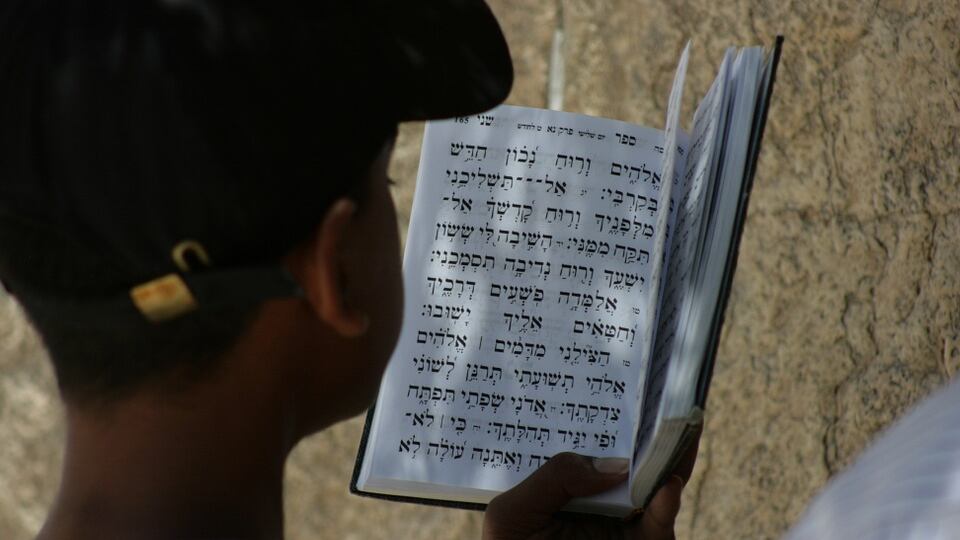 165 שני ספר יום שלישי פרק נא ט לחדש
אֱלֹהִים וְרוּחַ נָכוֹן חַדֵּשׁ
בְּקִרְבִּי: יג אַל־־־תַּשְׁלִיכֵנִי
מִלְּפָנֶיךָ וְרוּחַ קָדְשְׁךָ אַל־
תִּקַּח מִמֶּנִּי: יד הָשִׁיבָה לִּי שְׂשׂוֹן
יִשְׁעֶךָ וְרוּחַ נְדִיבָה תִסְמְכֵנִי:
טו אֲלַמְּדָה פֹשְׁעִים דְּרָכֶיךָ
וְחַטָּאִים אֵלֶיךָ יָשׁוּבוּ:
טז הַצִּילֵנִי מִדָּמִים | אֱלֹהִים
אֱלֹהֵי תְשׁוּעָתִי תְּרַנֵּן לְשׁוֹנִי
צִדְקָתֶךָ: יז אֲדֹנָי שְׂפָתַי תִּפְתָּח
וּפִי יַגִּיד תְּהִלָּתֶךָ: יח כִּי | לֹא־
וְאֶתֵּנָה עוֹלָה לֹא